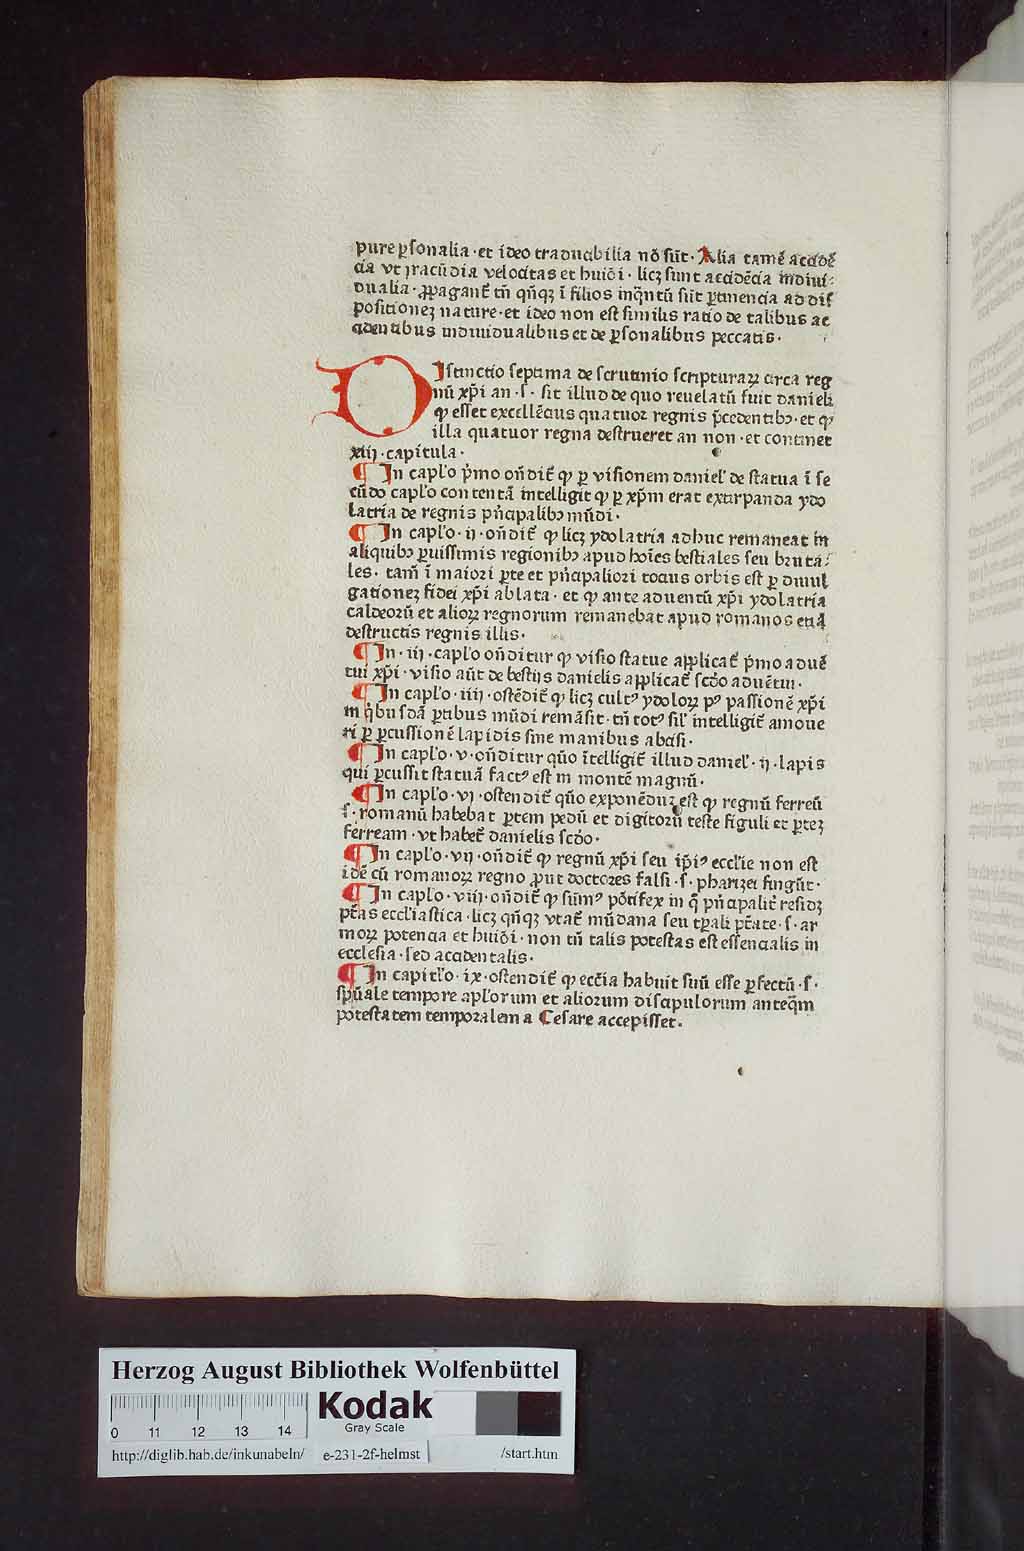 pure ꝑsonalia · et ideo traducibilia nō sūt · Alia tamē accidē
cia vt iracūdia velocitas et huiōi · licꝫ sunt accidēcia indiui⸗
dualia · ꝓpagant̄ tn̄ qn̄qꝫ ī filios inq̄ntū sūt ꝑtinencia ad dis
positionez nature · et ideo non est similis ratio de talibus ac
cidentibus indiuidualibus et de ꝑsonalibus peccatis ·
DIstinctio septima de scrutinio scripturaꝝ circa reg
nū xp̄i an · s · sit illud de quo reuelatū fuit danieli
ꝙ esset excellēcius quatuor regnis p̄cedentibꝰ · et ꝙ
illa quatuor regna destrueret an non · et continet
xiij · capitula ·
¶ In capl'o p̄mo on̄dit̄ ꝙ ꝑ visionem daniel' de statua ī se
cūdo capl'o contentā intelligit̄ ꝙ ꝑ xp̄m erat extirpanda ydo
latria de regnis pn̄cipalibꝰ mūdi ·
¶ In capl'o · ij · on̄dit̄ ꝙ licꝫ ydolatria adhuc remaneat in
aliquibꝰ ꝑuissimis regionibꝰ apud hoīes bestiales seu bruta⸗
les · tam̄ ī maiori ꝑte et pn̄cipaliori tocius orbis est ꝑ diuul
gationez fidei xp̄i ablata · et ꝙ ante aduentū xp̄i ydolatria
caldeorū et alioꝝ regnorum remanebat apud romanos etiā
destructis regnis illis ·
¶ In · iij · capl'o on̄ditur ꝙ visio statue applicat̄ p̄mo aduē
tui xp̄i · visio aūt de bestijs danielis applicat̄ scd̄o aduētui ·
¶ In capl'o · iiij · ostēdit̄ ꝙ licꝫ cultꝰ ydoloꝝ pꝰ passionē xp̄i
in q̇busdā ꝑtibus mūdi remāsit · tn̄ totꝰ sil' intelligit̄ amoue
ri ꝑ ꝑcussionē lapidis sine manibus abcisi ·
¶ In capl'o · v · on̄ditur qūo ītelligit̄ illud daniel' · ij · lapis
qui ꝑcussit statuā factꝰ est in montē magnū ·
¶ In capl'o · vj · ostendit̄ qūo exponēduz est ꝙ regnū ferreū
s · romanū habebat ꝑtem pedū et digitorū teste figuli et ꝑtez
ferream · vt habet̄ danielis scd̄o ·
¶ In capl'o · vij · on̄dit̄ ꝙ regnū xp̄i seu ip̄iꝰ eccl'ie non est
idē cū romanoꝝ regno ꝓut doctores falsi · s · pharizei fingūt ·
¶ In capl'o · viij · on̄dit̄ ꝙ sūmꝰ pōtifex in q̄ pn̄cipalit̄ residꝫ
pt̄as eccl'iastica · licꝫ qn̄qꝫ vtat̄ mūdana seu tp̄ali pt̄ate · s · ar
moꝝ potencia et huiōi · non tn̄ talis potestas est essencialis in
ecclesia · sed accidentalis ·
¶ In capitl'o · ix · ostendit̄ ꝙ ecc̄ia habuit suū esse ꝑfectū · s ·
sp̄uale tempore apl'orum et aliorum discipulorum anteq̄m
potestatem temporalem a Cesare accepisset ·
Herzog August Bibliothek Wolfenbüttel
0 11 12 13 14
Kodak
Gray Scale
http://diglib.hab.de/inkunabeln/ e-231-2f-helmst /start.htm